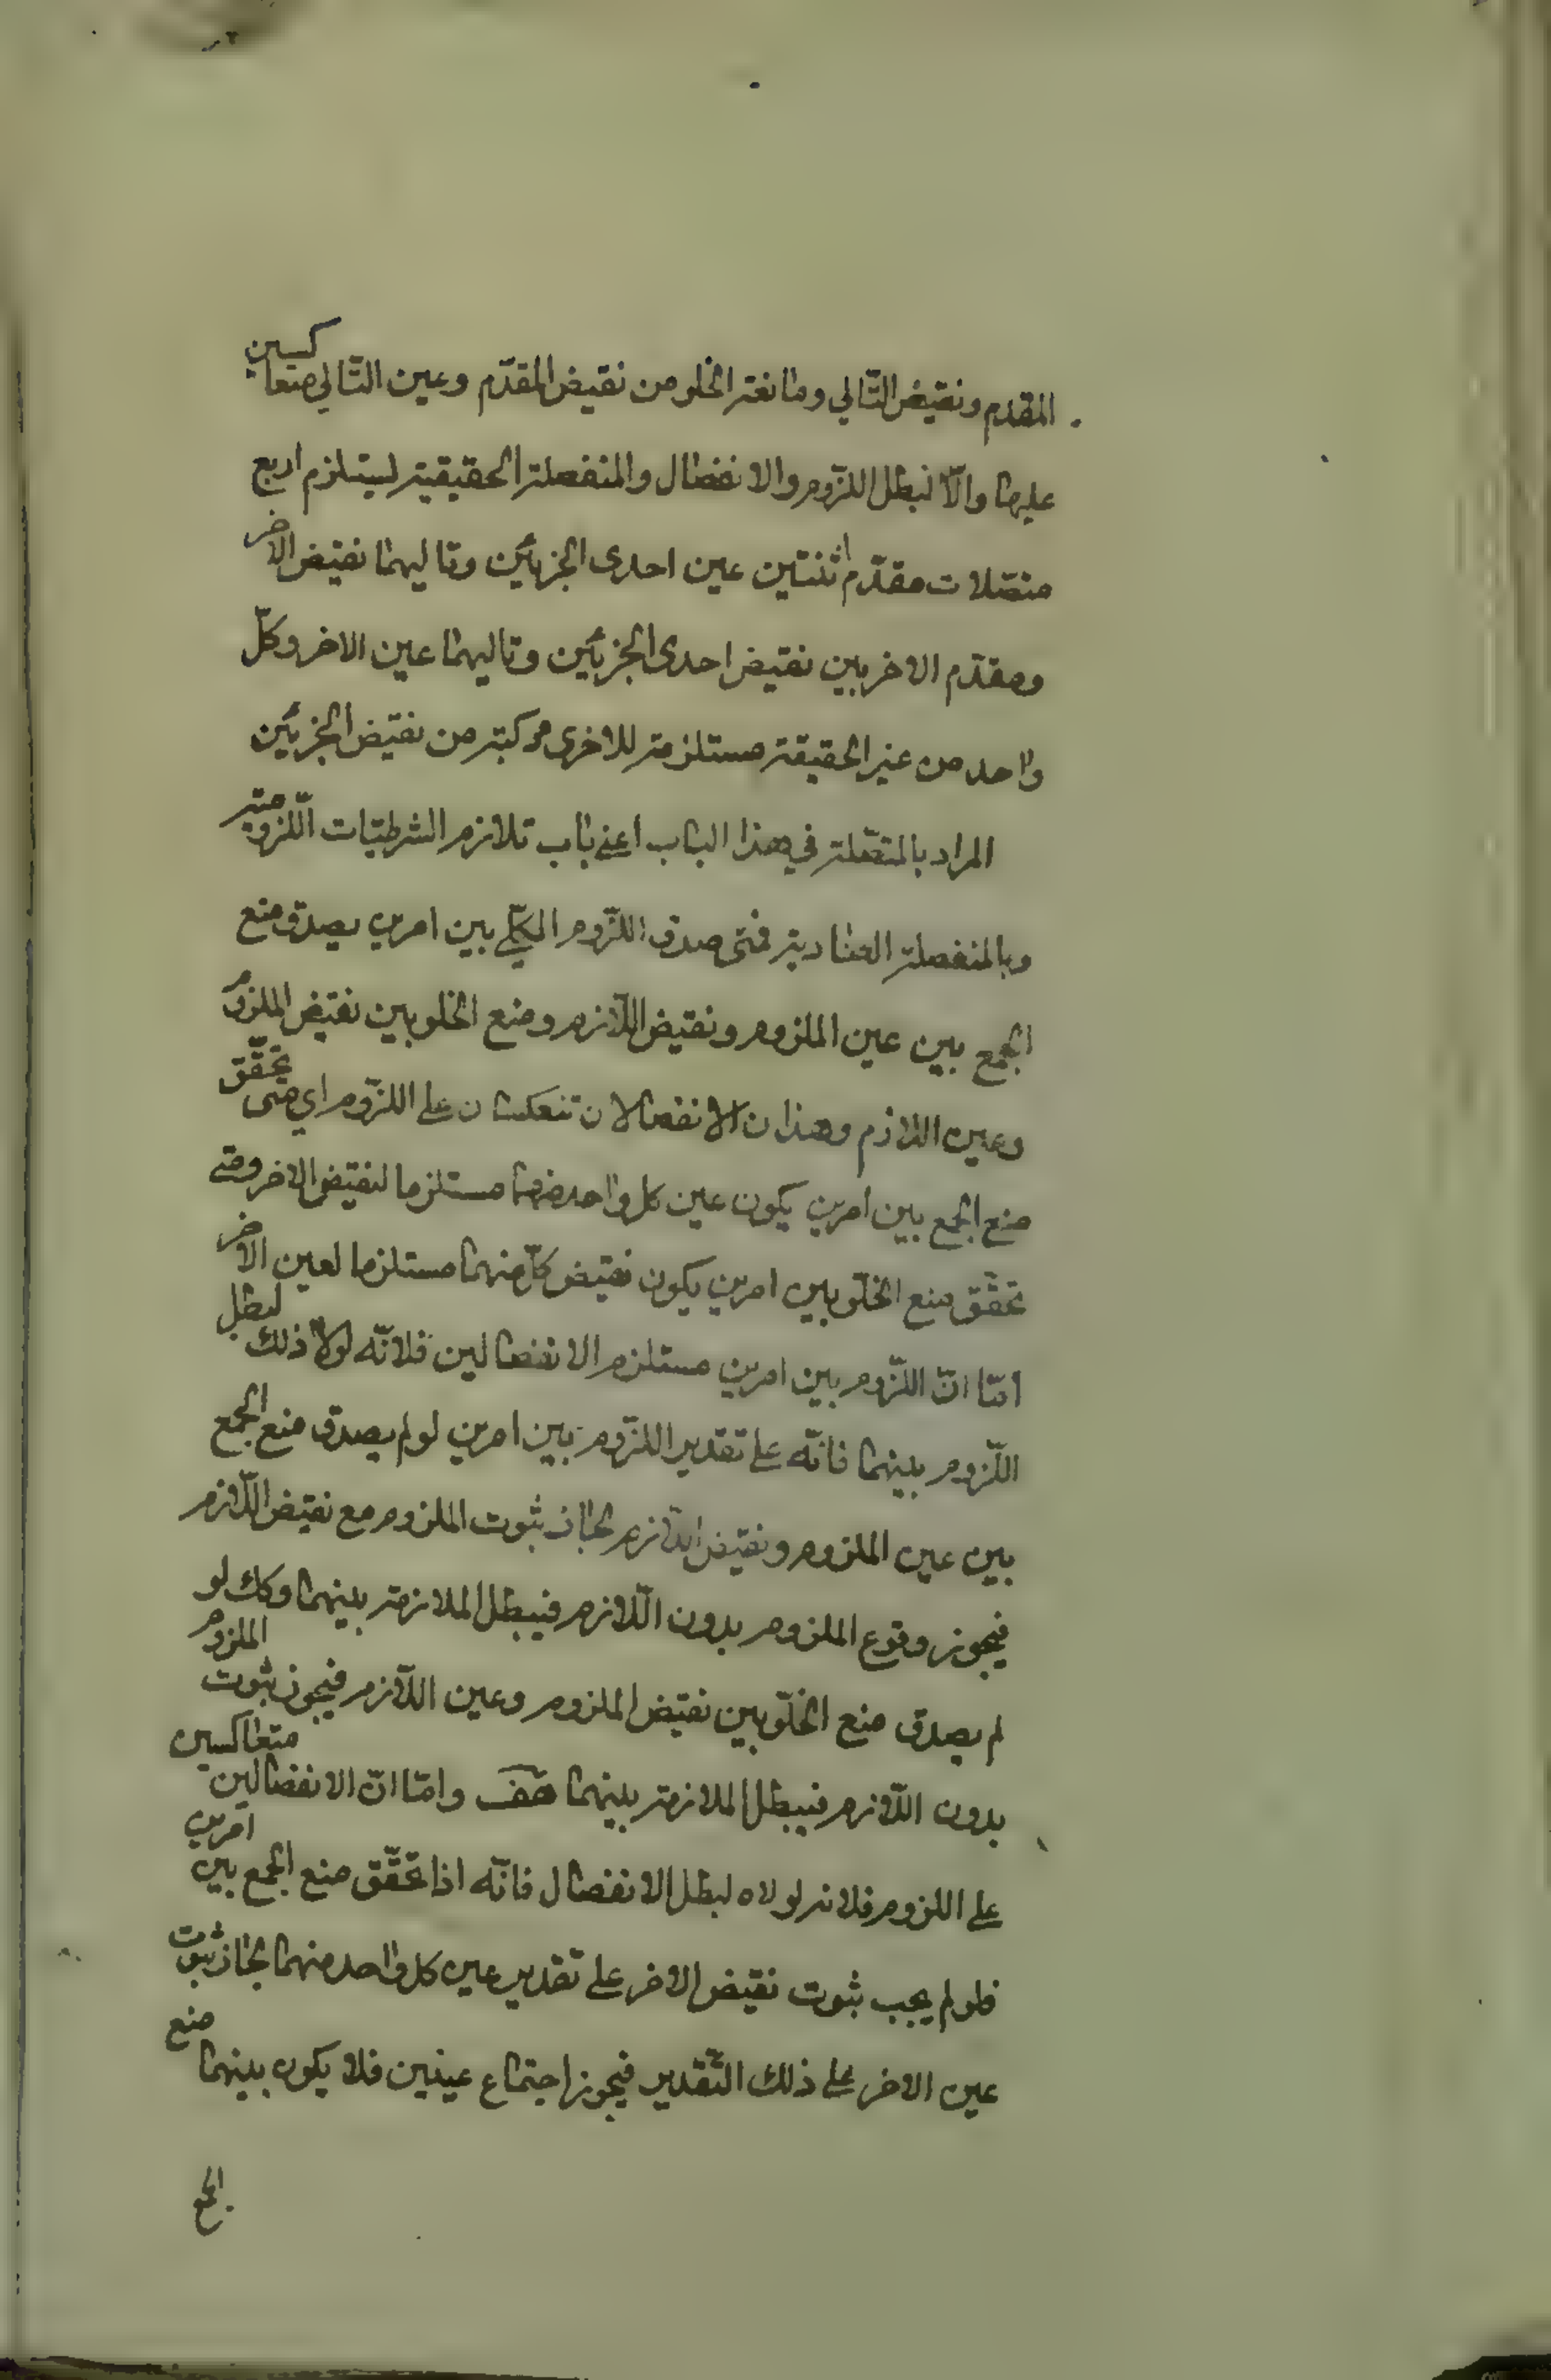 المقدم ونقيض التّالي ومانعة الخلو من نقيض المقدّم وعين التّالي متعاكسين
عليهما والّا لبطل اللّزوم والانفصال والمنفصلة الحقيقية ليستلزم اربع
متصلات مقدّم اثنتين عين احدى الجزئين وتاليهما نقيض الاخر
ومقدّم الاخريين نقيض احدى الجزئين وتاليهما عين الاخر وكلّ
واحد من غير الحقيقة مستلزمة للاخرى مركبة من نقيض الجزئين
المراد بالمتصلة في هذا الباب اعني باب تلازم الشرطيّات اللّزومية
وبالمنفصلة العنادية فمتى صدق اللّزوم الكلّي بين امرين يصدق منع
الجمع بين عين الملزوم ونقيض اللّازم ومنع الخلو بين نقيض الملزوم
وعين اللازم وهذان الانفصالان تنعكسان على اللزّوم اي متى تحقّق
منع الجمع بين امرين يكون عين كل واحد منهما مستلزما لنقيض الاخر ومتى
تحقّق منع الخلّو بين امرين يكون نقيض كلّ منهما مستلزما لعين الاخر
امّا انّ اللّزوم بين امرين مستلزم الانفصالين فلانّه لولا ذلك لبطل
اللّزوم بينهما فانّه على تقدير اللزّوم بين امرين لو لم يصدق منع الجمع
بين عين الملزوم ونقيض اللّازم لجاز ثبوت الملزوم مع نقيض اللّازم
فيجوز وقوع الملزوم بدون اللّازم فيبطل الملازمة بينهما وكك لو
لم يصدق منع الخلّو بين نقيض الملزوم وعين اللّازم فيجوز ثبوت الملزوم
بدون اللّازم فيبطل الملازمة بينهما هف وامّا انّ الانفصالين متعاكسين
على اللزوم فلانه لولاه لبطل الانفصال فانّه اذا تحقّق منع الجمع بين امرين
فلو لم يجب ثبوت نقيض الاخر على تقدير عين كل واحد منهما لجاز ثبوت
عين الاخر على ذلك التّقدير فيجوز اجتماع عينين فلا يكون بينهما منع
الجمع